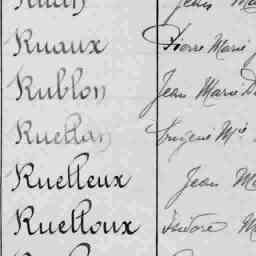 Jean
Ruaux Pierre Marie
Rublon Jean Marie
Ruellan Eugène Mie
Ruelleux Jean
Ruelloux Isidore